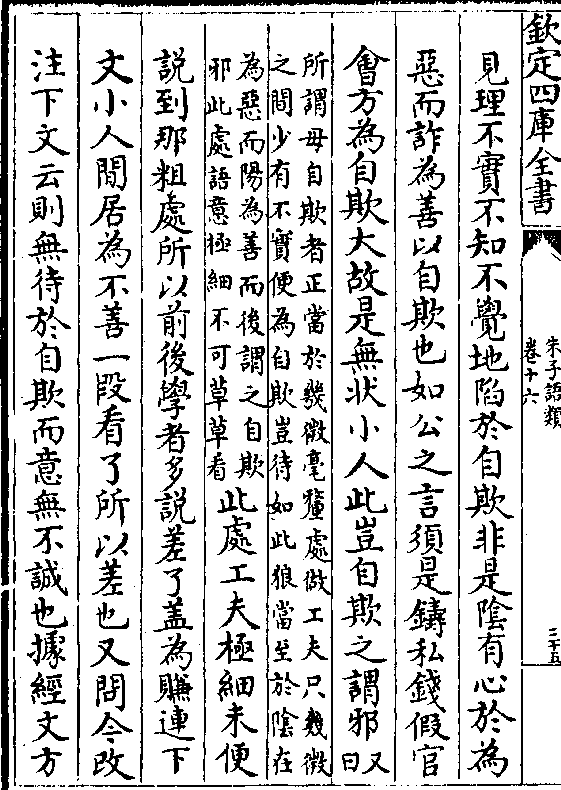 欽定四庫全書
朱子語類
卷十六
三十五
見理不實不知不覺地陷於自欺非是陰有心於為
惡而詐為善以自欺也如公之言須是鑄私錢假官
會方為自欺大故是無狀小人此豈自欺之謂邪又曰
所謂毋自欺者正當於幾微毫釐處做工夫只幾微
之間少有不實便為自欺豈待如此狼當至於陰在
為惡而陽為善而後謂之自欺
邪此處語意極細不可草草看
此處工夫極細未便
說到那粗處所以前後學者多説差了盖為賺連下
文小人閒居為不善一段看了所以差也又問今改
注下文云則無待於自欺而意無不誠也據經文方